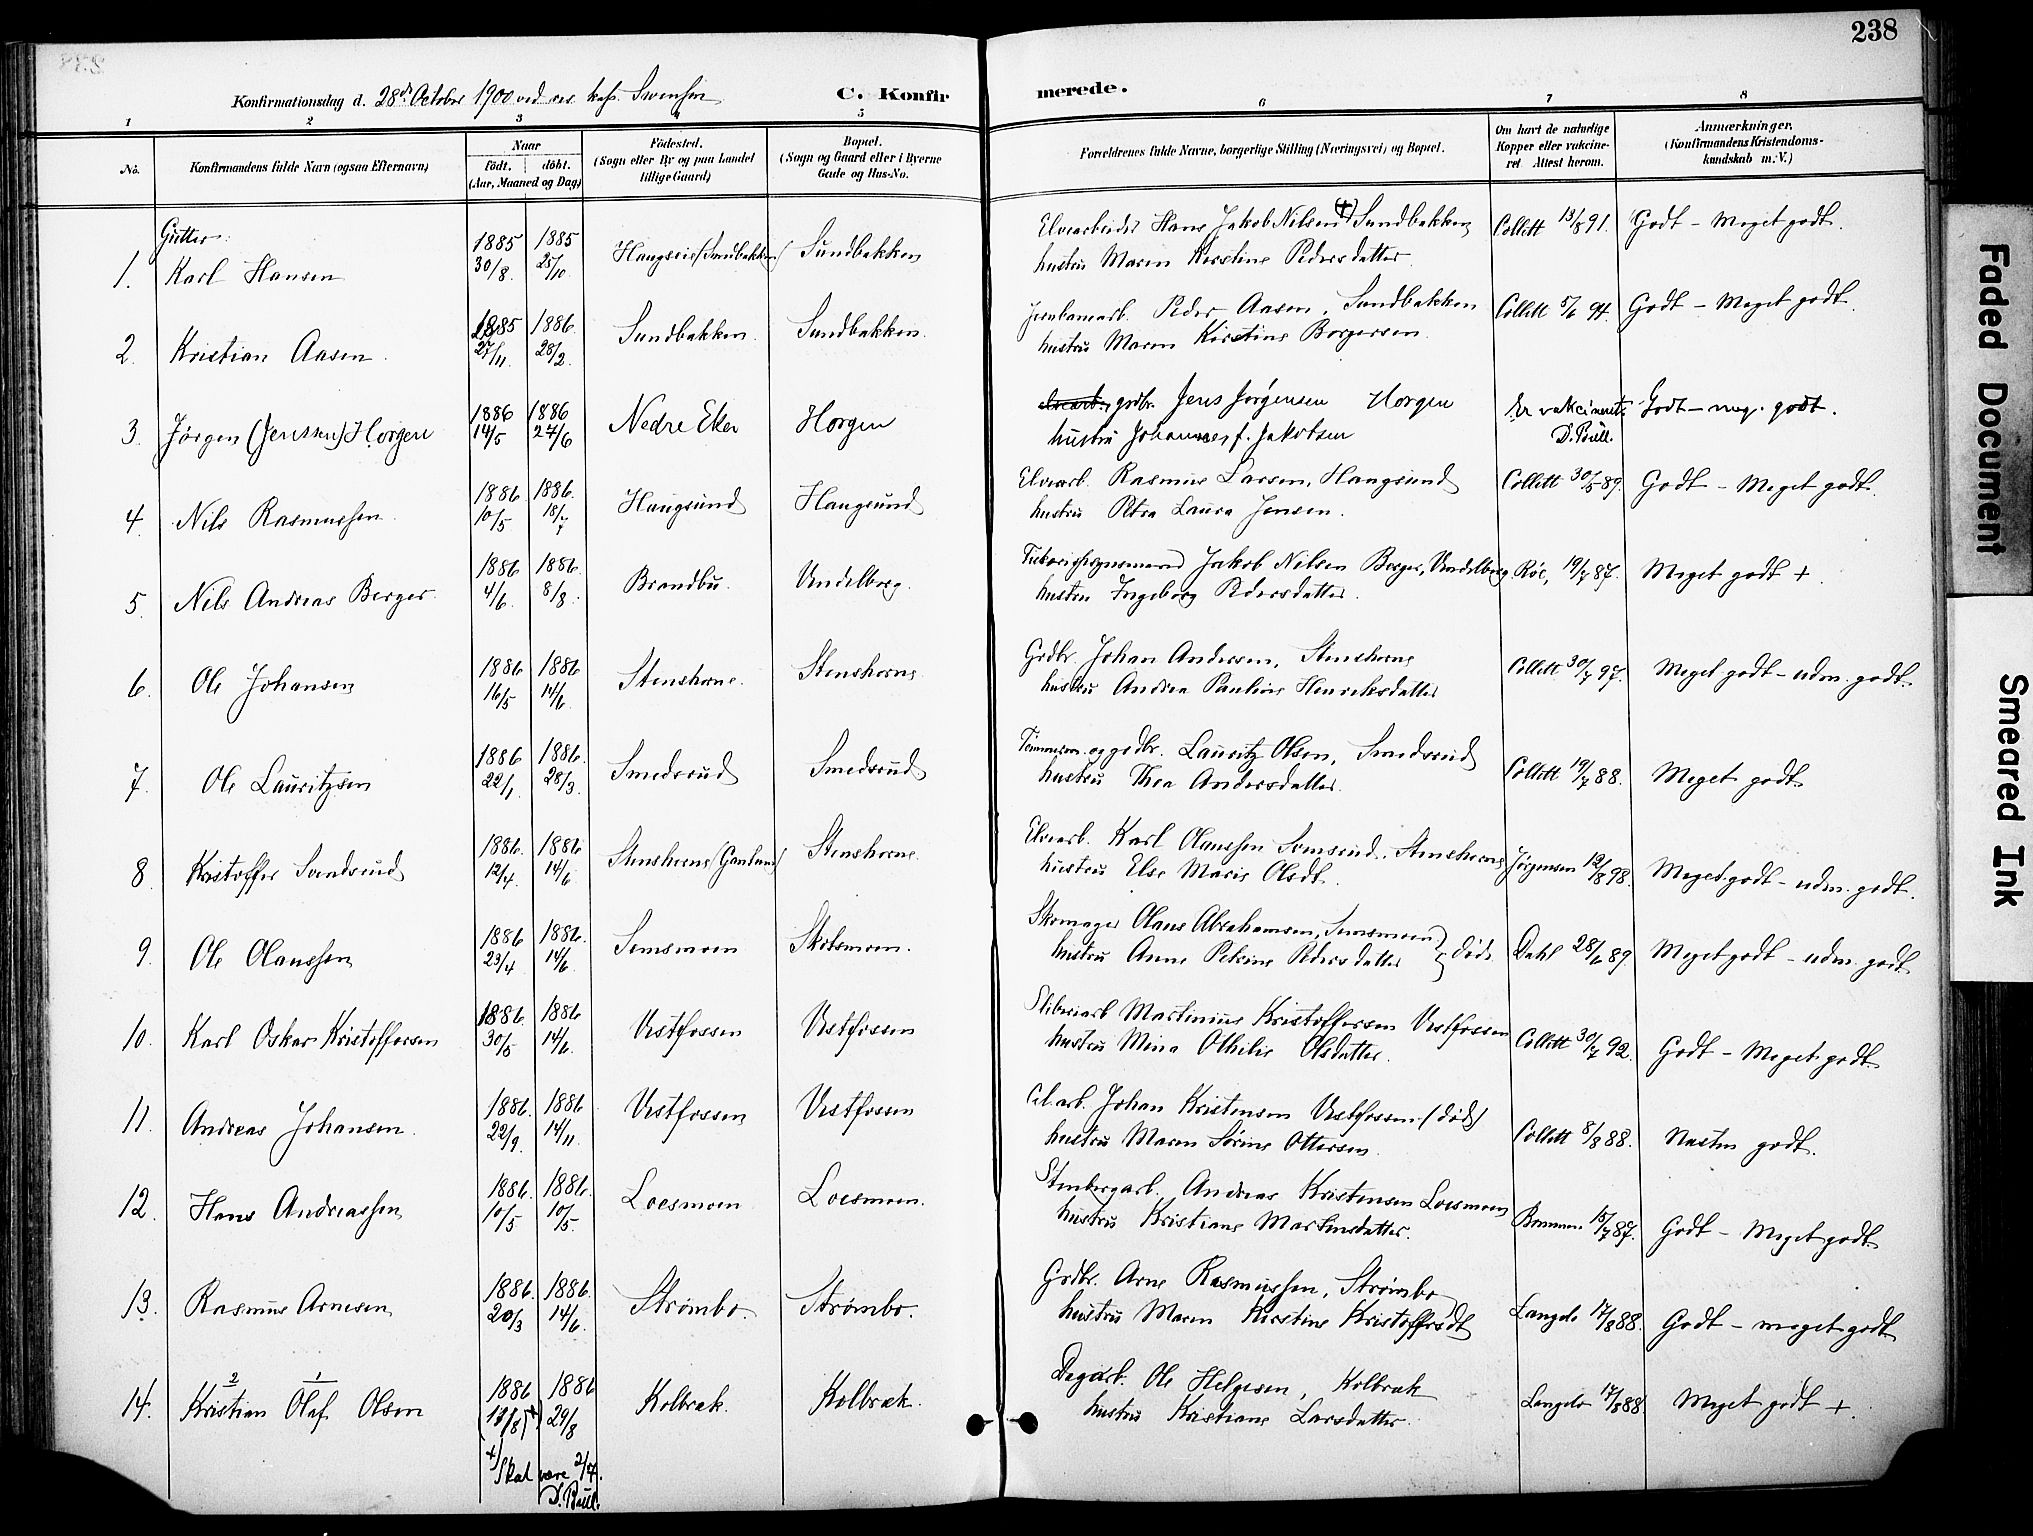 238
Konfirmationsdag d. 28de October 1900 ved res. kap. Svensen
C. Konfirmerede.
1 2 3 4 5 6 7 8
No.
Konfirmandens fulde Navn (ogsaa Efternavn)
Naar
födt. döbt.
(Aar, Maaned og Dag)
Födested.
(Sogn eller By og paa Landet
tillige Gaard)
Bopæl.
(Sogn og Gaard eller i Byerne
Gade og Hus-No.
Forældrenes fulde Navne, borgerlige Stilling (Næringsvei) og Bopæl.
Om havt de naturlige
Kopper eller vakcine-
ret Attest herom.
Anmærkninger.
(Konfirmandens Kristendoms-
kundskab m.V.)
Gutter:
1. Karl Hansen 1885 30/8. 1885 25/10. Sundbakken
Elvearbeider Hans Jakob Nilsen (+) Sundbakken
hustru Maren Kirstine Pedersdatter.
Collett 13/8 91. Godt – Meget godt.
2. Kristian Aasen. 1885 27/11. 1886. 28/2. Sundbakken. Sundbakken.
Jernbanearb. Peder Aasen, Sundbakken
hustru Maren Kirstine Borgersen.
Collett 5/6 94. Godt – Meget godt.
3. Jørgen (Jenssen) Horgen 1886 14/5 1886 27/6 Nedre Eker Horgen
elvearb., gdbr. Jens Jørgensen Horgen
hustru Johanne, f. Jakobsen
Er vakcineret. D. Bull. Godt – meg. godt.
4. Nils Rasmussen. 1886. 10/5. 1886. 18/7 Haugsund Haugsund
Elvearb. Rasmus Larsen, Haugsund
hustru Petra Laura Jensen.
Collett 30/5 89. Godt – Meget godt.
5. Nils Andreas Berger. 1886 4/6. 1886. 8/8. Brandbu. Vendelborg.
Jakob Nilsen Berger, Vendelborg
hustru Ingeborg Pedersdatter.
Röe, 19/7 87. Meget godt +.
6. Ole Johansen 1886 16/5 1886 14/6. Stenshorne. Stenshorne
Grdbr. Johan Andersen, Stenshorne
hustru Andrea Pauline Henriksdatter
Collett 30/7 97. Meget godt – udm. godt.
7. Ole Lauritzsen 1886 22/1. 1886. 28/3. Smedsrud Smedsrud
Tømmerm. og grdbr. Lauritz Olsen, Smedsrud
hustru Thea Andersdatter.
Collett 19/7 88. Meget godt.
8. Kristoffer Semsrud 1886. 12/4. 1886 14/6 Stenshorne Stenshorne.
Elvearb. Karl Olaussen Semsrud, Stenshorne
hustru Else Marie Olsdt.
Jørgensen 12/8 98. Meget godt – udm. godt.
9. Ole Olaussen 1886 23/4 1886. 14/6. Semsmoen Skotsmoen.
Skomager Olaus Abrahamsen, Semsmoen
hustru Anne Petrine Pedersdatter } døde
Dahl 28/6 89. Meget godt – udm. godt
10. Karl Oskar Kristoffersen 1886. 30/5 1886 14/6. Vestfossen Vestfossen
Sliberiarb Martinius Kristoffersen Vestfossen
hustru Mina Othilie Olsdatter.
Collett 30/7 92. Godt – Meget godt.
11. Andreas Johansen. 1886. 22/9. 1886 14/11. Vestfossen Vestfossen
Cel.arb. Johan Kristensen Vestfossen (död)
hustru Maren Sørine Ottersen.
Collett 8/8 88. Næsten godt.
12. Hans Andreassen 1886. 10/5 1886. 10/5. Loesmoen Loesmoen.
Stenbergarb. Andreas Kristensen Loesmoen
hustru Kristiane Martinsdatter.
15/7 87. Godt – Meget godt.
13. Rasmus Arnesen 1886. 20/3 1886. 14/6. Strømbo. Strømbo.
Grdbr. Arne Rasmussen, Strømbo
hustru Maren Kirstine Kristoffersdt
Langelo 17/8 88. Godt – meget godt
2 1
14. Kristian Olaf Olsen 1886 (13/8)+) 1886 29/8 Kolbræk. Kolbræk.
Dagarb. Ole Helgesen, Kolbræk
hustru Kristiane Larsdatter.
Langelo 17/8 88. Meget godt +.
+) Skal være 2/7.
D. Bull.
Faded Document
Smeared Ink